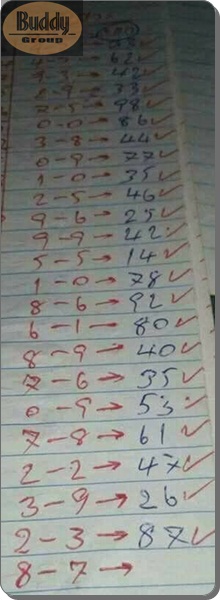 Buddy
Group
4-7→62✓
9-3→42✓
2-9→33✓
7-5→98✓
0-0→86✓
3-8→44✓
0-9→77✓
1-0→35✓
2-5→46✓
9-6→25✓
9-9→42✓
5-5→14✓
1-0→78✓
8-6→92✓
6-1→80✓
8-9→40✓
7-6→35✓
0-9→53✓
7-8→61✓
2-2→47✓
3-9→26✓
2-3→87✓
8-7→